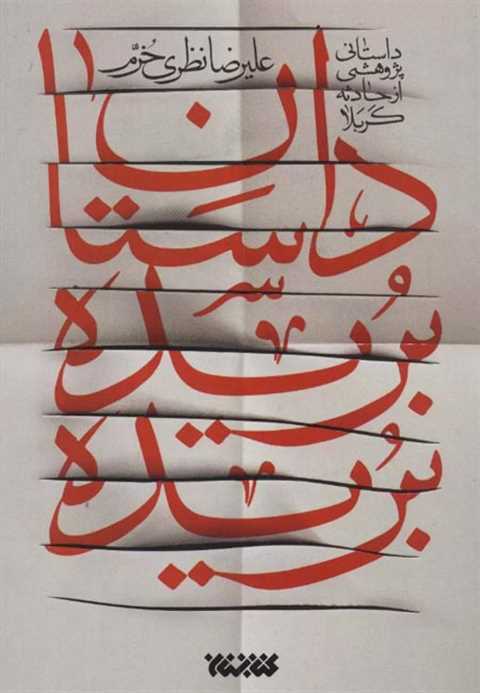 داستانی
پژوهشی
از حادثه
کربلا
علیرضا نظری خُرّم
داستان
بُریده
بُریده
کتابستان